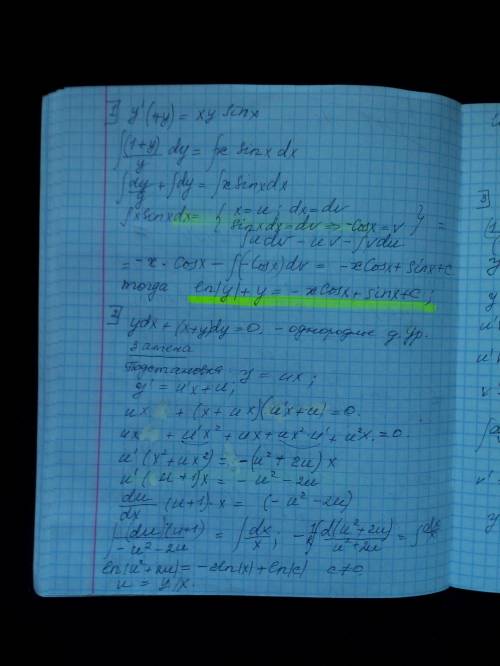 1) y'(1+y) = xy sinx
∫(1+y)/y dy = ∫x sinx dx
∫dy/y + ∫dy = ∫x sinx dx
∫x sinx dx = { x = u; dx = du
sinxdx = dv => -cosx = v
∫udv = uv - ∫vdu } =
= -x · cosx - ∫(-cosx)dv = -xcosx + sinx + c
тогда ln|y| + y = -xcosx + sinx + c;
2) ydx + (x+y)dy = 0. - однородное д. ур.
Замена
подстановка y = ux;
y' = u'x + u;
ux + (x + ux)(u'x + u) = 0.
ux + u'x² + ux + ux²·u' + u²x = 0.
u'(x² + ux²) = -(u² + 2u)x
u'(u+1)x = -u² - 2u
du/dx (u+1)·x = (-u² - 2u)
∫(du)(u+1)/(-u² - 2u) = ∫dx/x; -1/2∫d(u² + 2u)/(u² + 2u) = ∫dx/x
ln(u² + 2u) = -2ln|x| + ln|c| c≠0
u = y/x.
3)